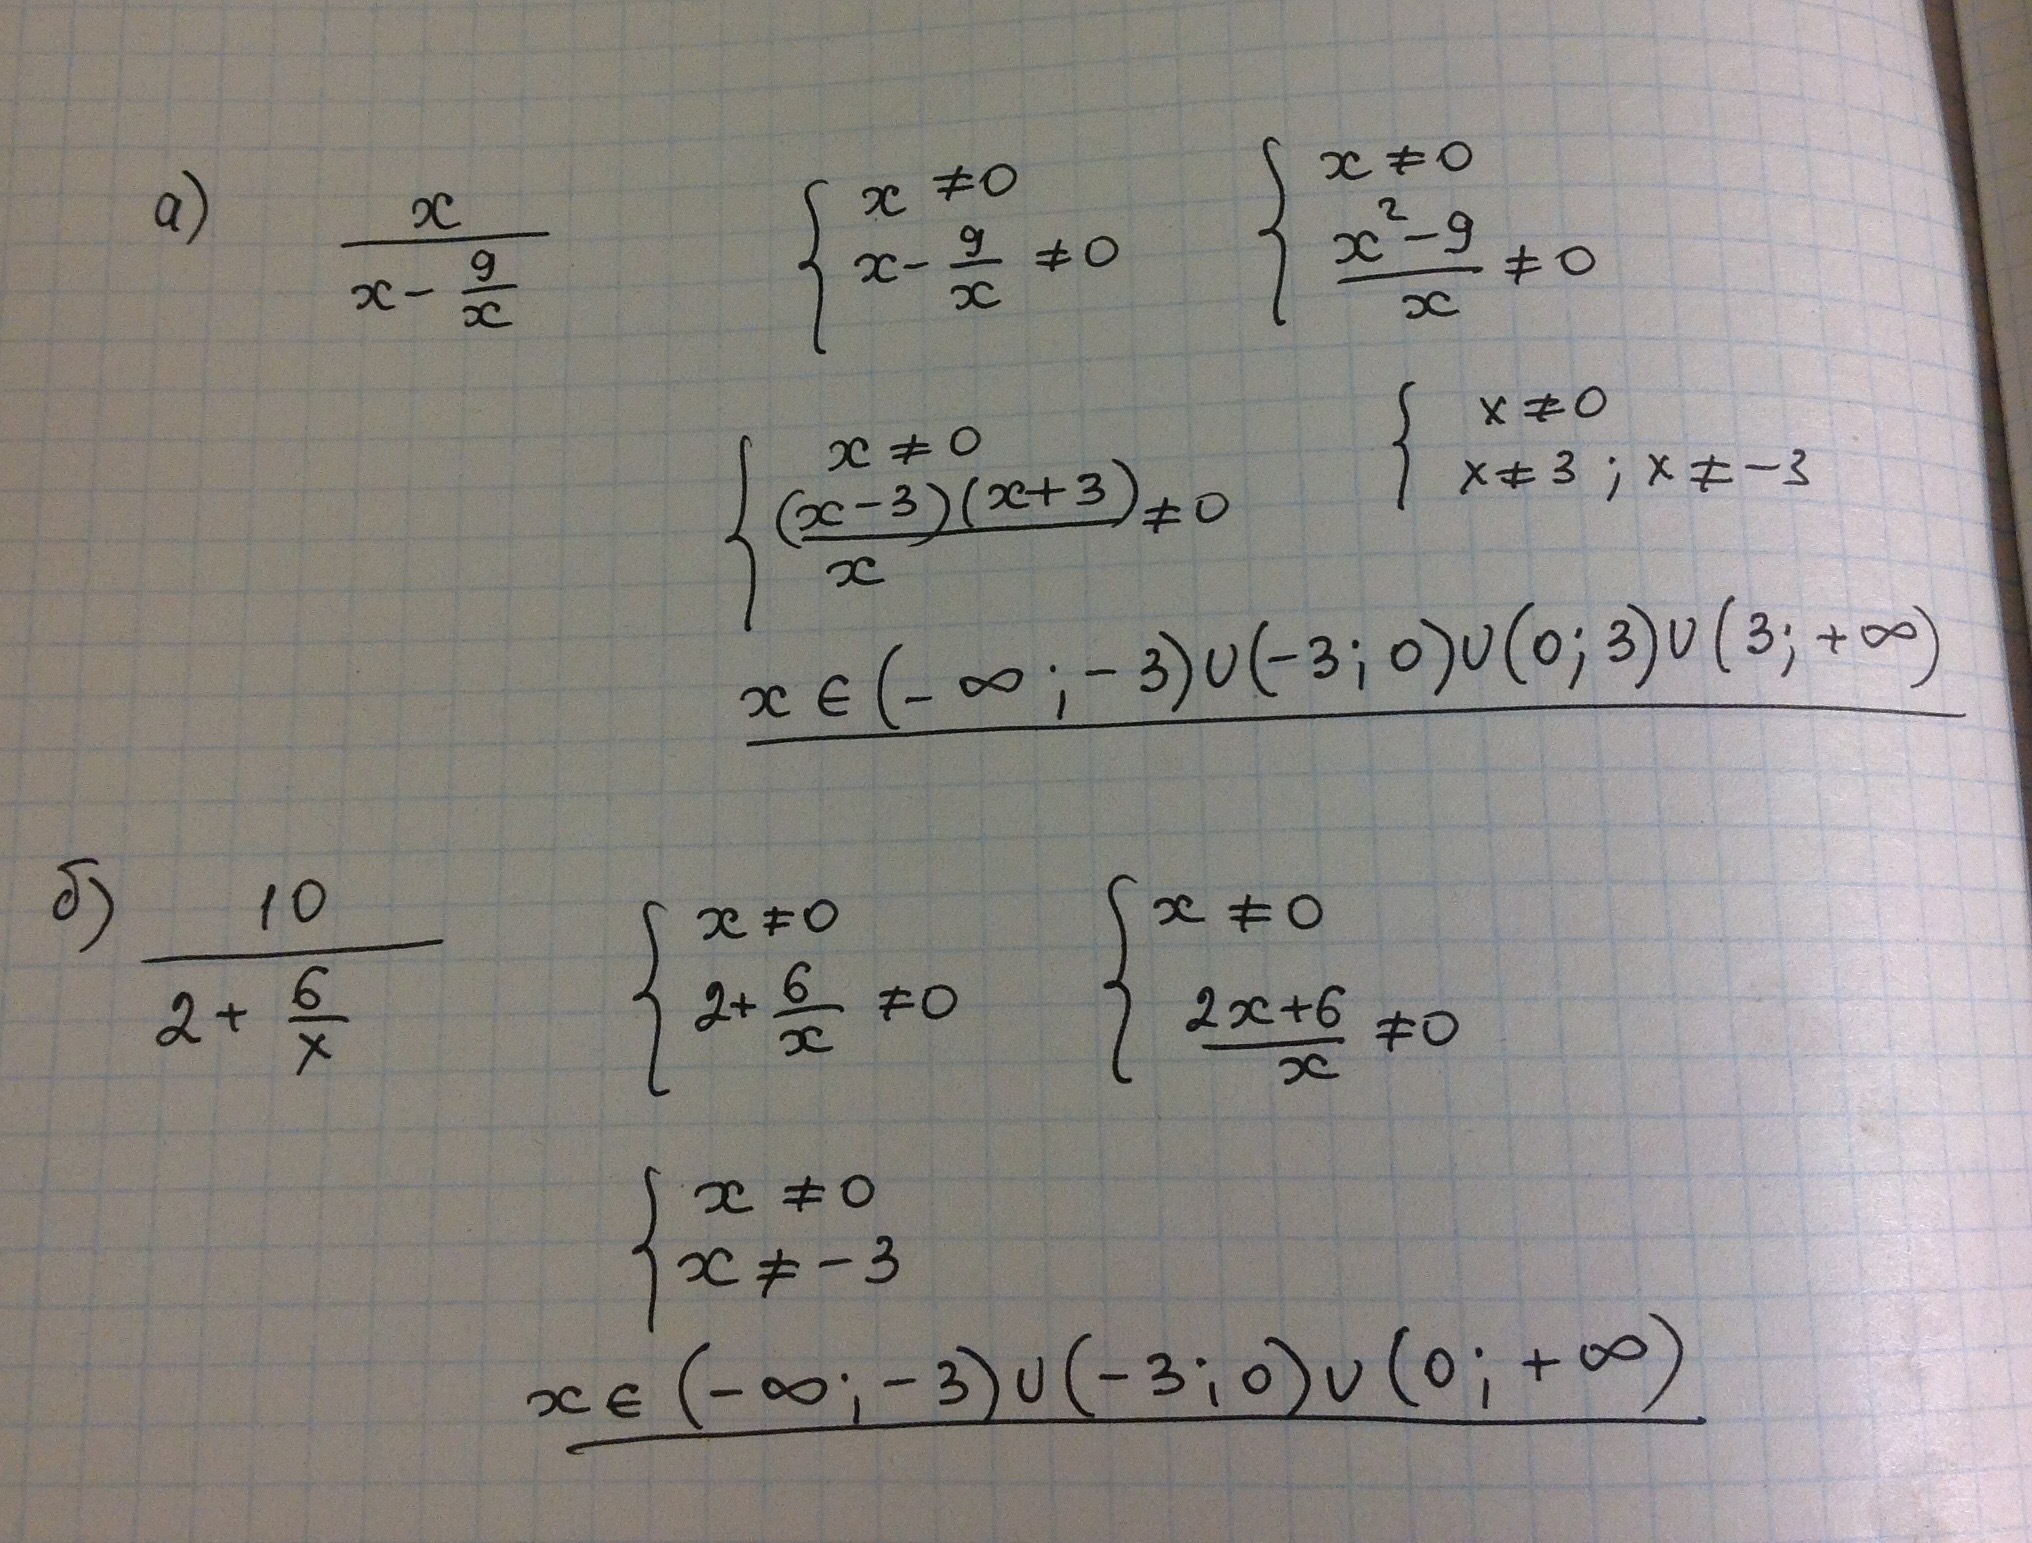 а) x / (x - 9/x)   { x ≠ 0 ; x - 9/x ≠ 0   { x ≠ 0 ; (x² - 9)/x ≠ 0
{ x ≠ 0 ; (x-3)(x+3)/x ≠ 0   { x ≠ 0 ; x ≠ 3 ; x ≠ -3
x ∈ (-∞; -3) ∪ (-3; 0) ∪ (0; 3) ∪ (3; +∞)
б) 10 / (2 + 6/x)   { x ≠ 0 ; 2 + 6/x ≠ 0   { x ≠ 0 ; (2x+6)/x ≠ 0
{ x ≠ 0 ; x ≠ -3
x ∈ (-∞; -3) ∪ (-3; 0) ∪ (0; +∞)